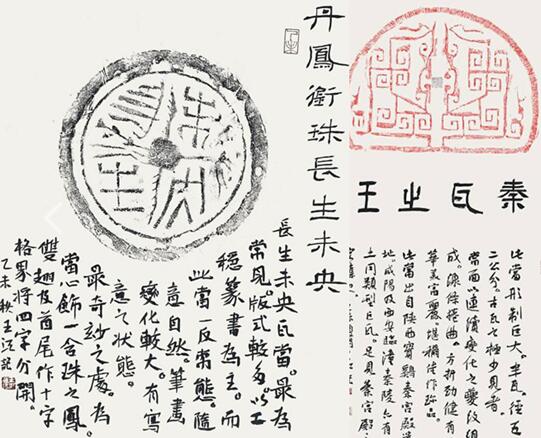 秦瓦之王
此當形制巨大。半瓦。徑五
二公分。古瓦之極少見者。
當面以連續變化之夔紋組
成。線條捲曲。方折勁健有
華美富麗。堪稱佳作珍品。
此當出自陝西寶鷄秦宮殿遺
地。咸陽及西安臨潼秦陵亦有
土同類型巨瓦。足見秦宮殿之
丹鳳銜珠長生未央
長生未央
長生未央瓦當。最為
常見。版式較多。以工
穩篆書為主。而
此當一反常態。隨
意自然。筆畫
變化較大。有寫
意之狀態。
最奇妙之處。為
當心飾一含珠之鳳
雙翅及首尾作十字
格界將四字分開。
乙未秋王汀記